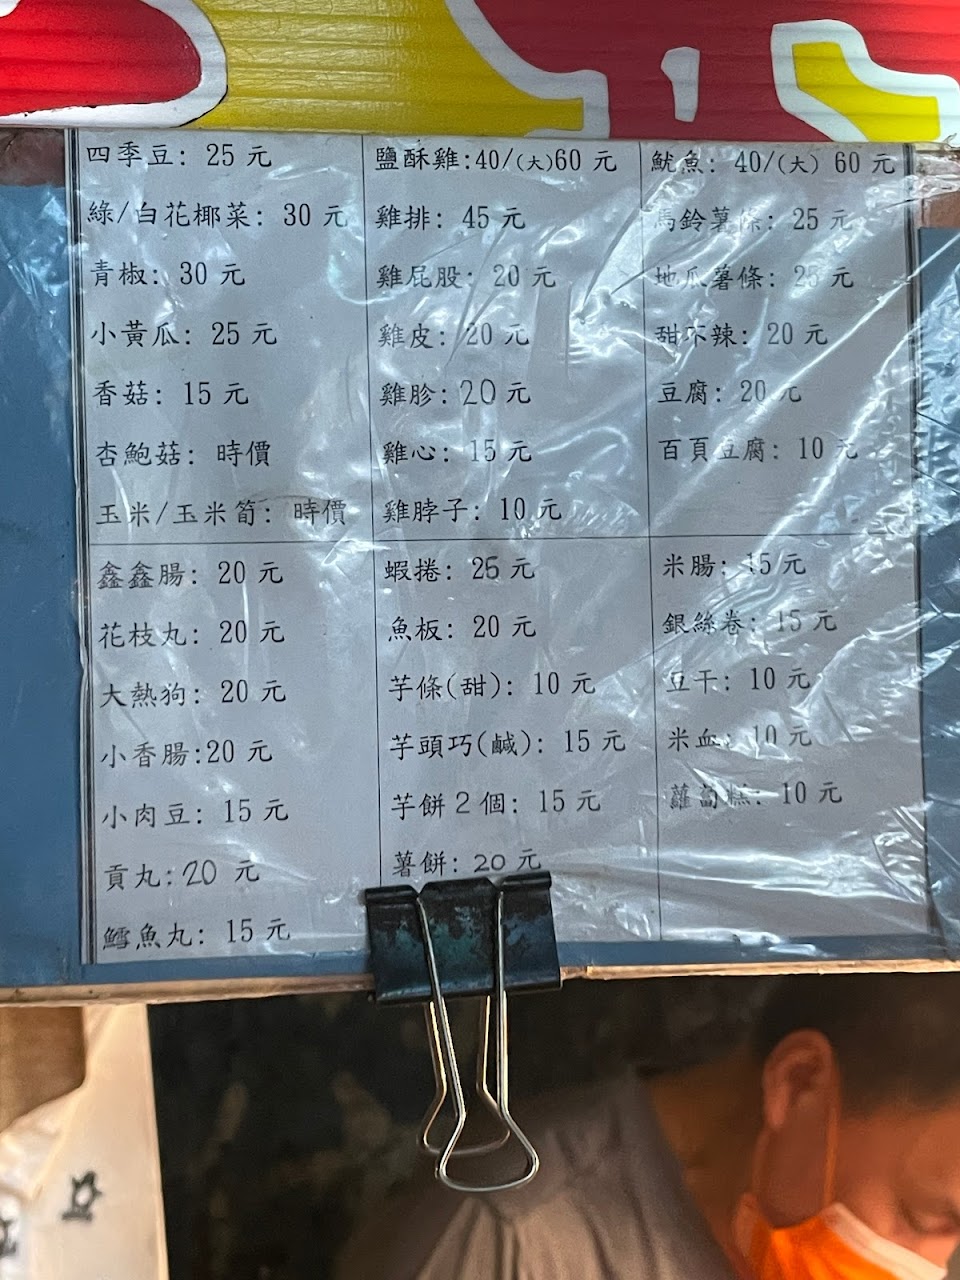 四季豆: 25 元
綠/白花椰菜: 30 元
青椒: 30 元
小黃瓜: 25 元
香菇: 15 元
杏鮑菇: 時價
玉米/玉米筍: 時價
鹽酥雞:40/(大)60 元
雞排: 45 元
雞屁股: 20 元
雞皮: 20 元
雞胗: 20 元
雞心: 15 元
雞脖子: 10 元
魷魚: 40/(大) 60 元
馬鈴薯條: 25 元
地瓜薯條: 25 元
甜不辣: 20 元
豆腐: 20 元
百頁豆腐: 10 元
鑫鑫腸: 20 元
花枝丸: 20 元
大熱狗: 20 元
小香腸:20 元
小肉豆: 15 元
貢丸:20 元
鱈魚丸: 15 元
蝦捲: 25 元
魚板: 20 元
芋條(甜): 10 元
芋頭巧(鹹): 15 元
芋餅 2 個: 15 元
薯餅: 20 元
米腸: 15 元
銀絲卷: 15 元
豆干: 10 元
米血: 10 元
蘿蔔糕: 10 元